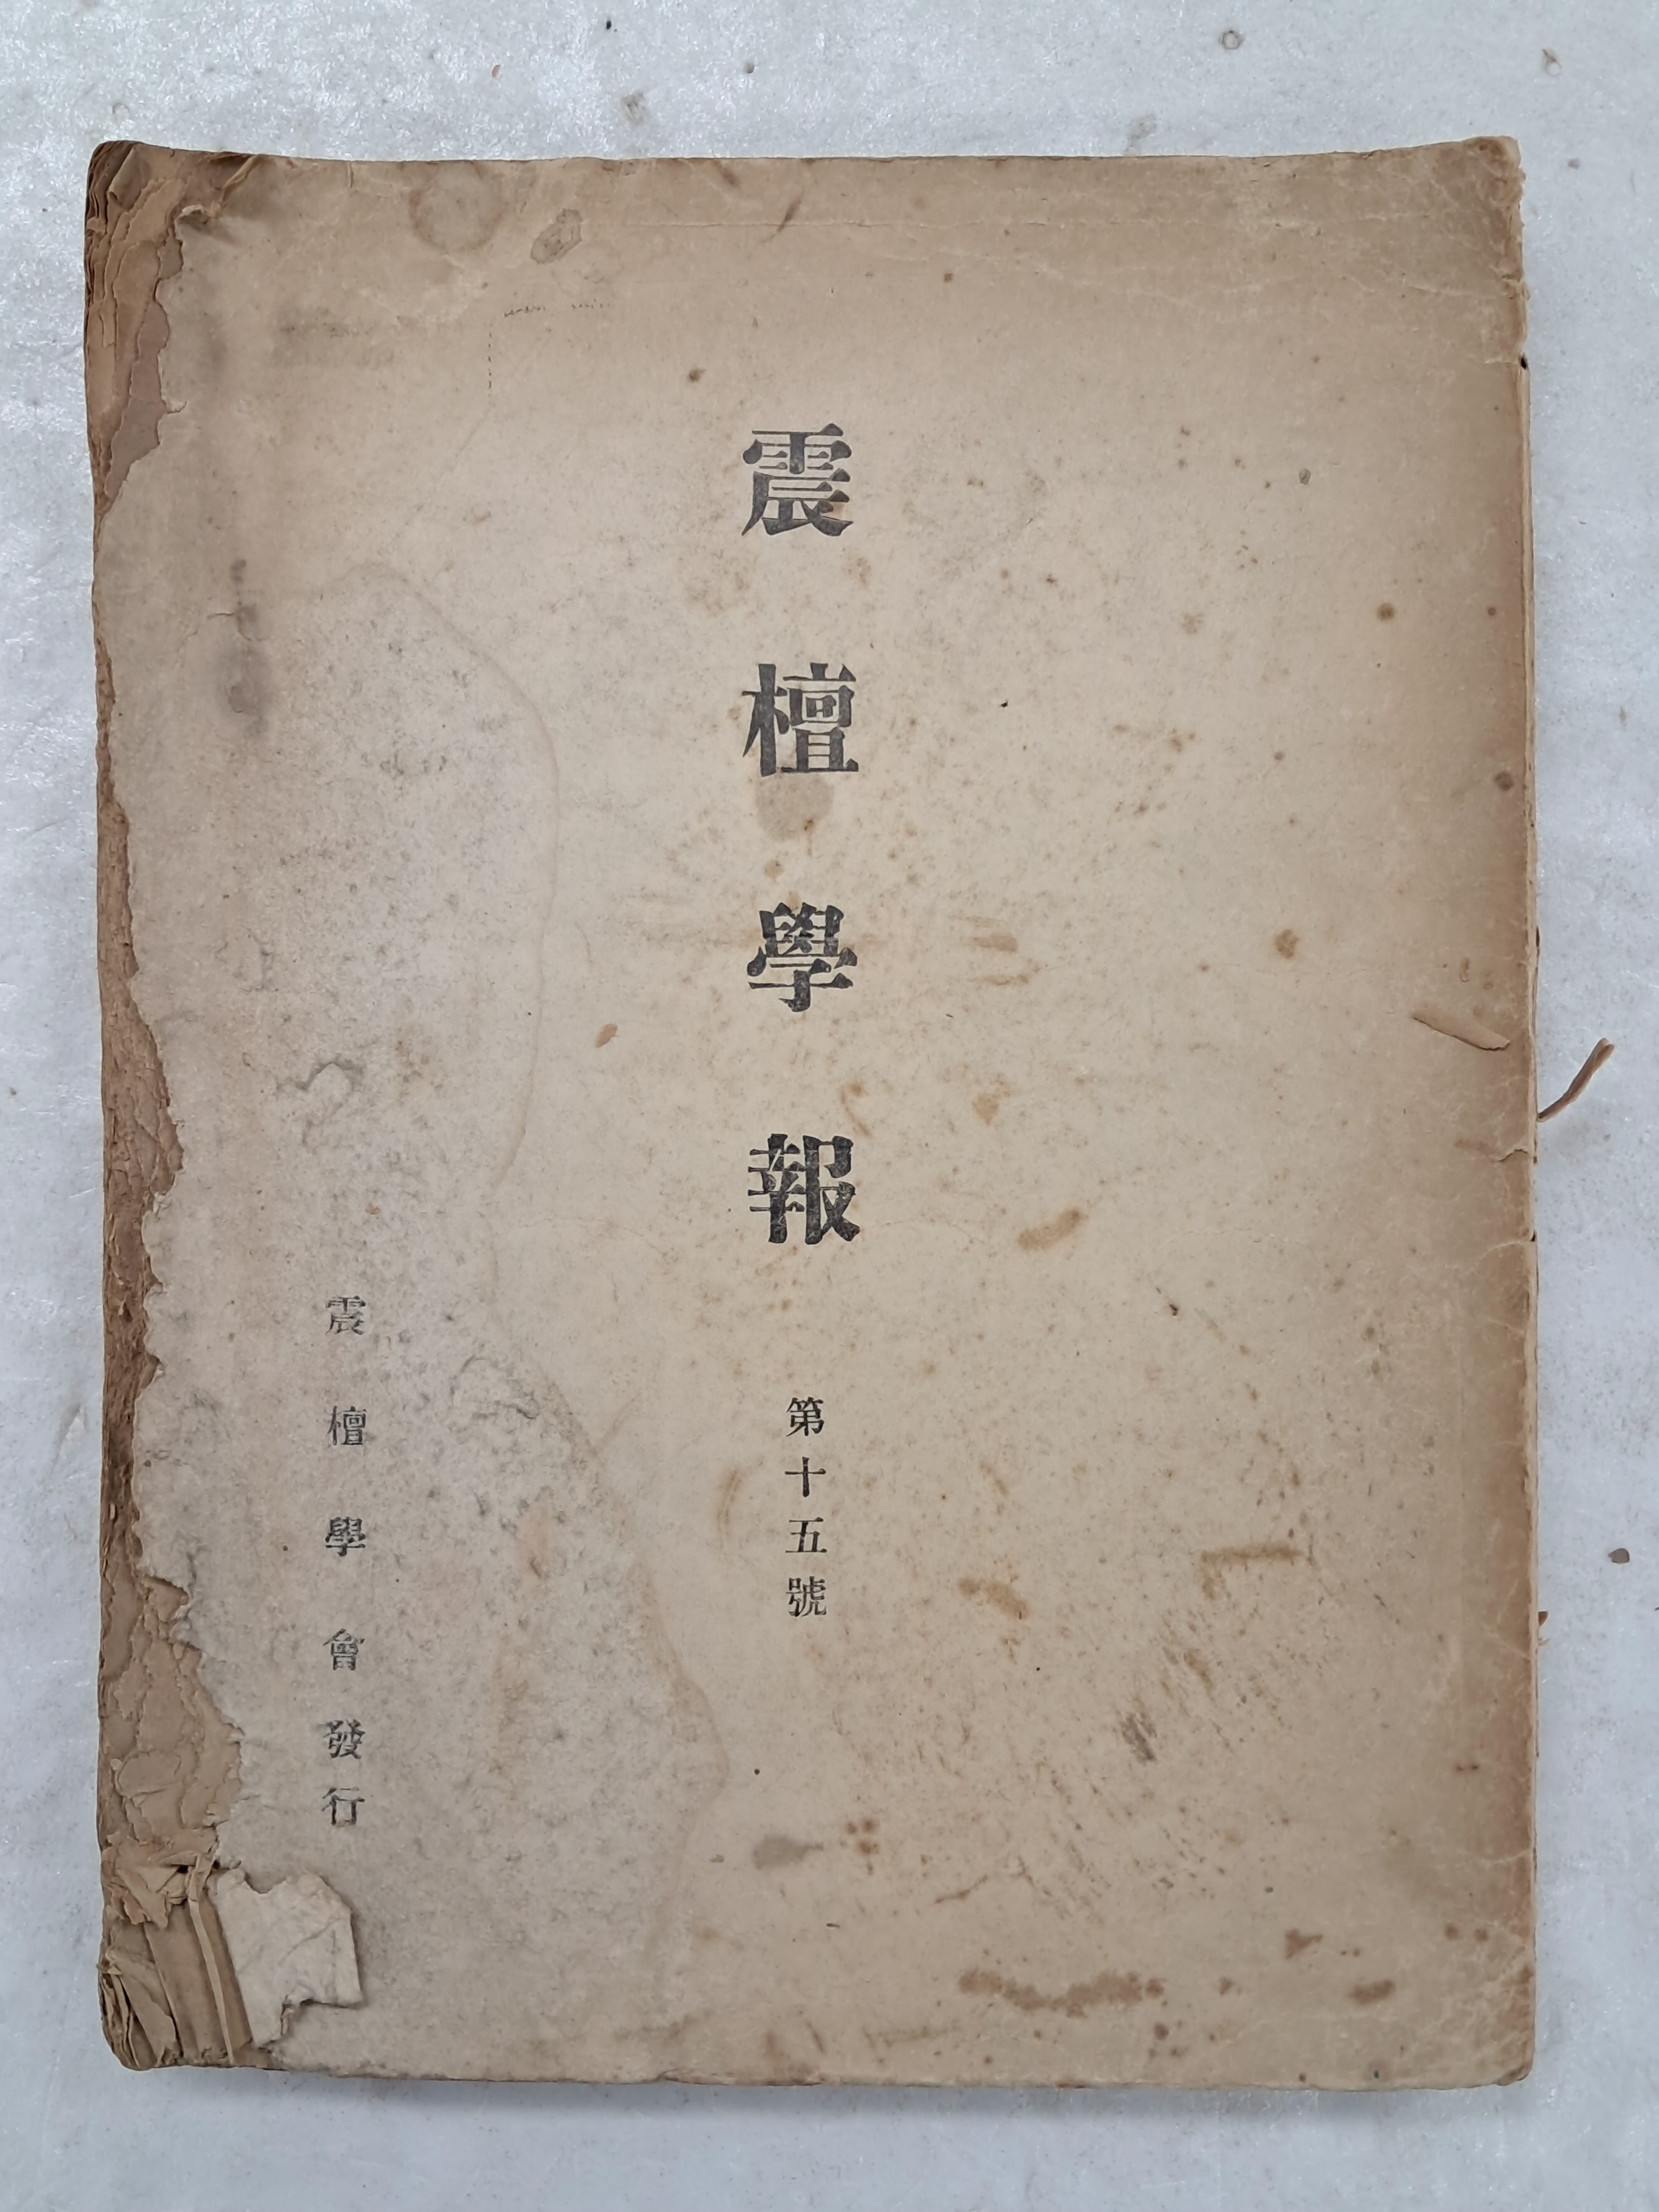 震檀學報
第十五號
震檀學會發行